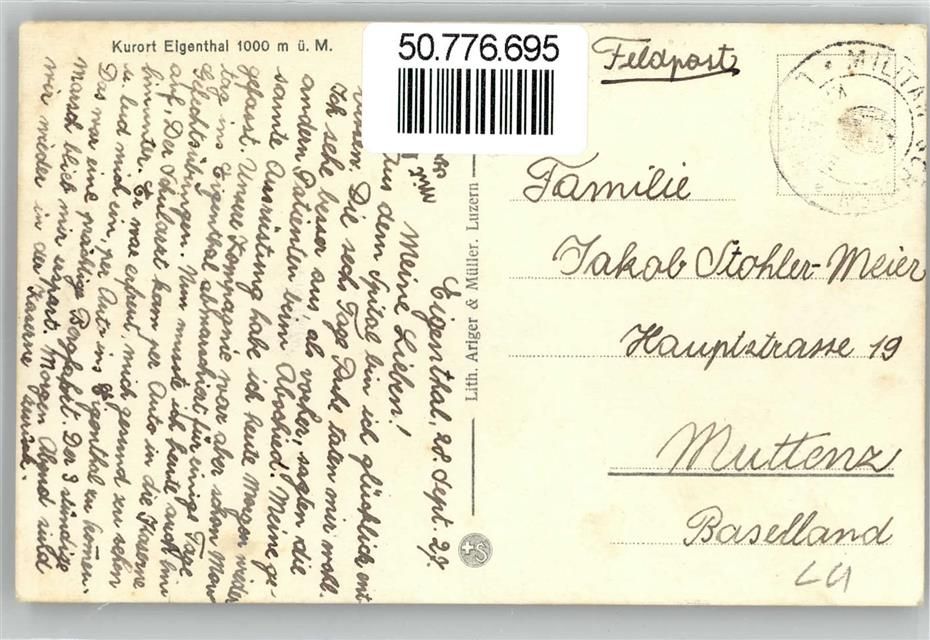 Kurort Eigenthal 1000 m ü. M.
50.776.695
Feldpost
MILITÄR
Familie
Jakob Stohler-Meier
Hauptstrasse 19
Muttenz
Baselland
LU
Lith. Ariger & Müller. Luzern
Eigenthal, 28. Sept. 29.
Meine Lieben!
Aus dem Spital bin ich glücklich ent-
lassen. Die sech Tage Ruhe taten mir wohl.
Ich sehe besser aus als vorher, sagten die
andern Patienten beim Abschied. Meine ge-
samte Ausrüstung habe ich heute Morgen wieder
gefasst. Unsere Kompagnie war aber schon Mon-
tag ins Eigenthal abmarschiert für einige Tage
Gefechtsübungen. Nun musste ich heute auch hin-
auf. Der Schularzt kam per Auto in die Kaserne
hinunter. Er war erfreut, mich gesund zu sehen
u. lud mich ein, per Auto ins Eigenthal zu kommen.
Das war eine prächtige Bergfahrt. Der 3 stündige
Marsch blieb mir erspart. Morgen Abend sind
wir wieder in der Kaserne
zurück.
Mit